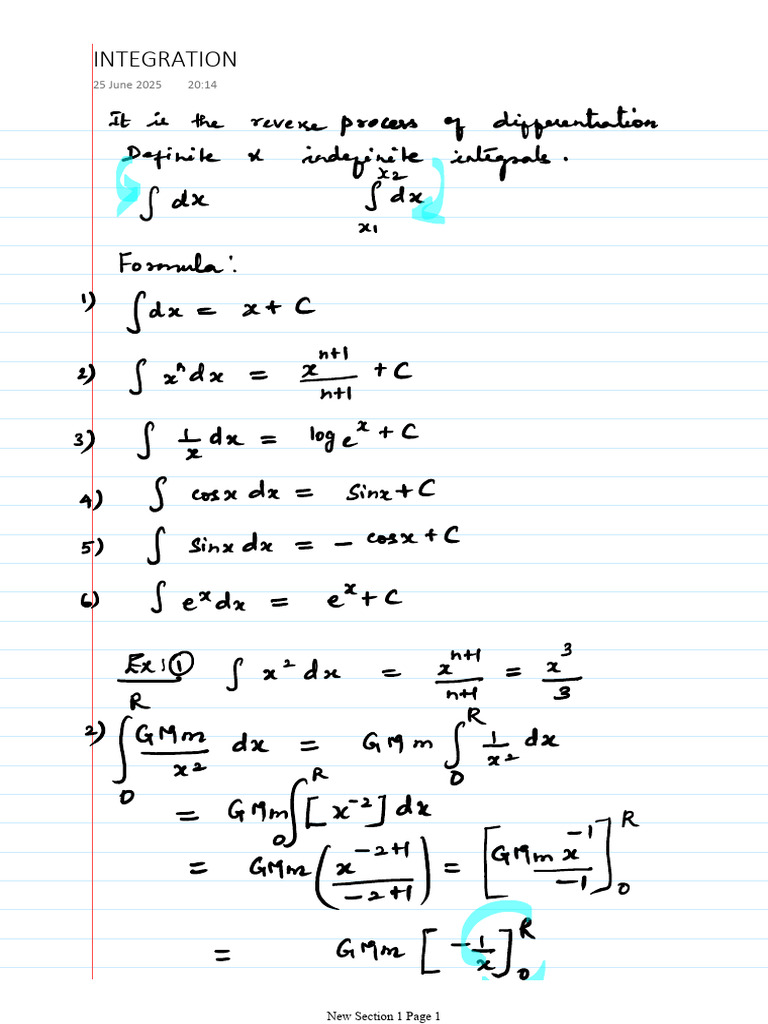 INTEGRATION
25 June 2025 20:14
It is the reverse process of differentiation
Definite & indefinite integrals.
∫ dx ∫_{x1}^{x2} dx
Formula:
1) ∫dx = x + C
2) ∫ x^n dx = x^{n+1}/n+1 + C
3) ∫ 1/x dx = log e^x + C
4) ∫ cosx dx = Sinx + C
5) ∫ Sinx dx = - cosx + C
6) ∫ e^x dx = e^x + C
Ex: ① ∫ x^2 dx = x^{n+1}/n+1 = x^3/3
2) ∫_0^R GMm/x^2 dx = GMm ∫_0^R 1/x^2 dx
= GMm ∫_0^R [x^{-2}] dx
= GMm (x^{-2+1}/-2+1) = [GMm x^{-1}/-1]_0^R
= GMm [-1/x]_0^R
New Section 1 Page 1